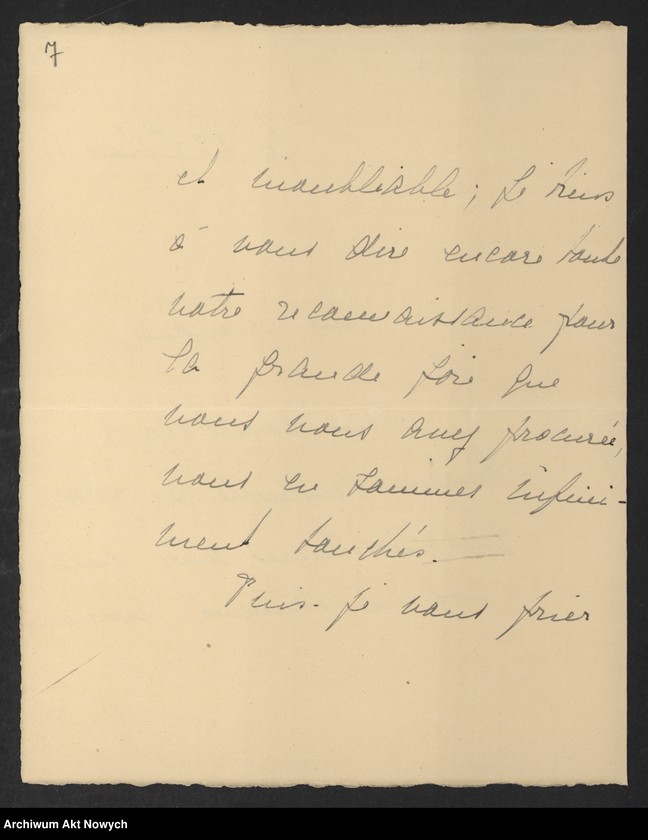 7
et inoubliable ; je tiens
à vous dire encore toute
notre reconnaissance pour
la grande joie que
vous nous avez procurée,
nous en sommes infini-
ment touchés.
Puis-je vous prier
Archiwum Akt Nowych